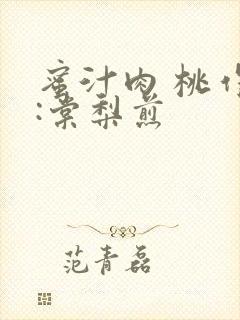 蜜汁肉桃作
:棠梨煎
范青磊